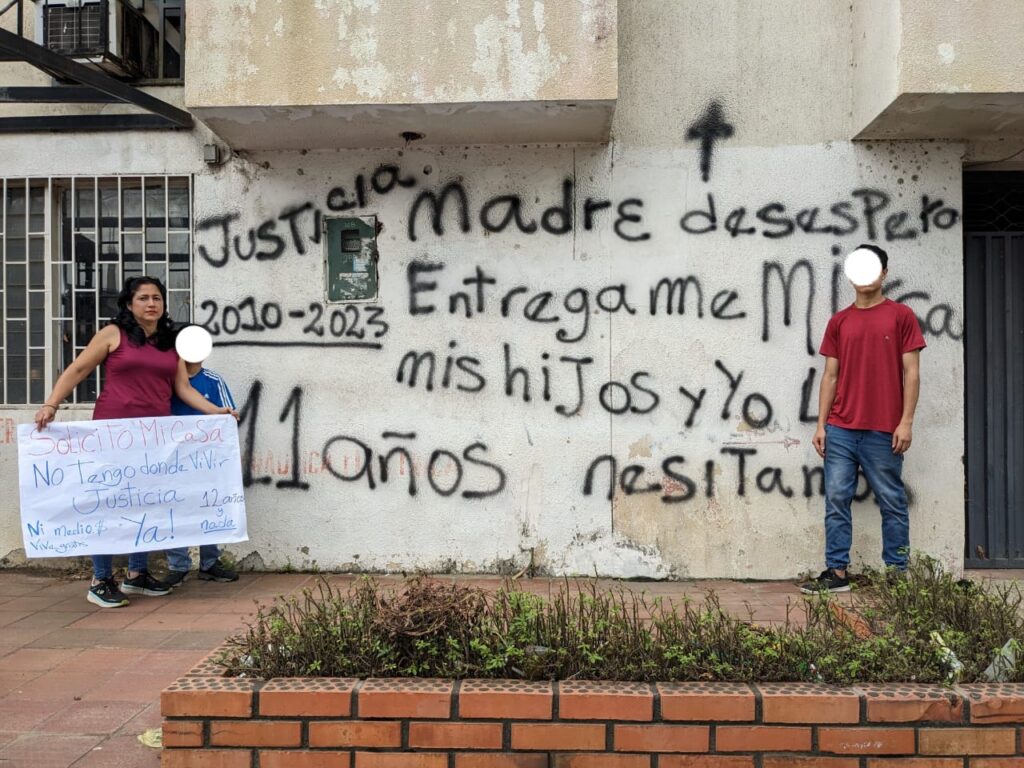 Justicia Madre desespero
2010-2023 Entregame Mi casa
mis hijos y yo L
11 años nesitamo
Solicito Mi Casa
No Tengo donde ViVir
Justicia 12 años
Ni medio $ Ya! y nada
ViVe gratis